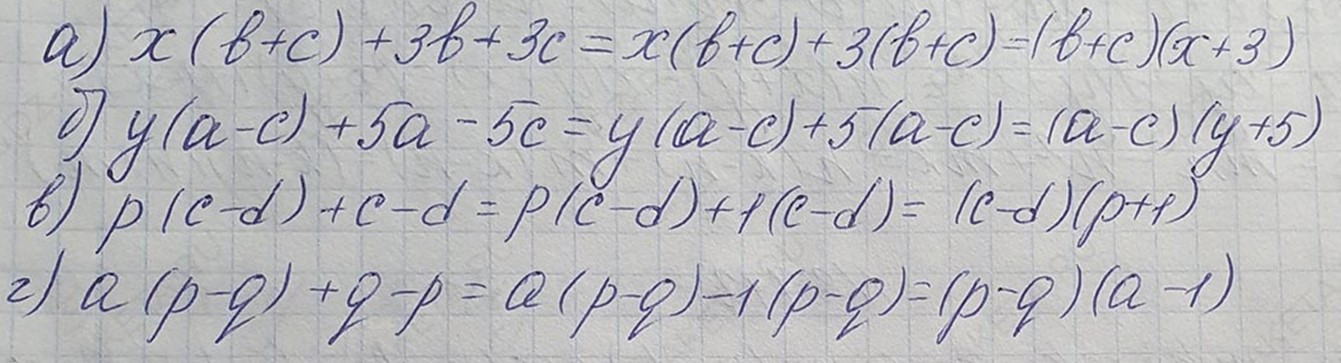 а) x(b+c)+3b+3c=x(b+c)+3(b+c)=(b+c)(x+3)
б) y(a-c)+5a-5c=y(a-c)+5(a-c)=(a-c)(y+5)
в) p(c-d)+c-d=p(c-d)+1(c-d)=(c-d)(p+1)
г) a(p-q)+q-p=a(p-q)-1(p-q)=(p-q)(a-1)